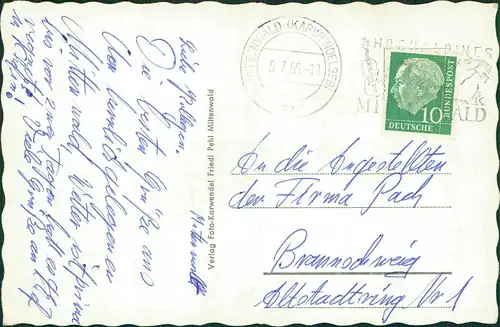 Liebe Kollegen.
Die besten Grüße aus
dem herrlich gelegenen
Mittenwald. Wetter ist prima
bis vor zwei Tagen
Viele Grüße an
Verlag Foto-Karwendel Friedl Pehl Mittenwald
MITTENWALD (KARWENDELGEB)
5.7.55-11
HOCHALPINES
MITTENWALD
DEUTSCHE
BUNDESPOST
10
An die Angestellten
der Firma Pach
Braunschweig
Altstadtring Nr 1